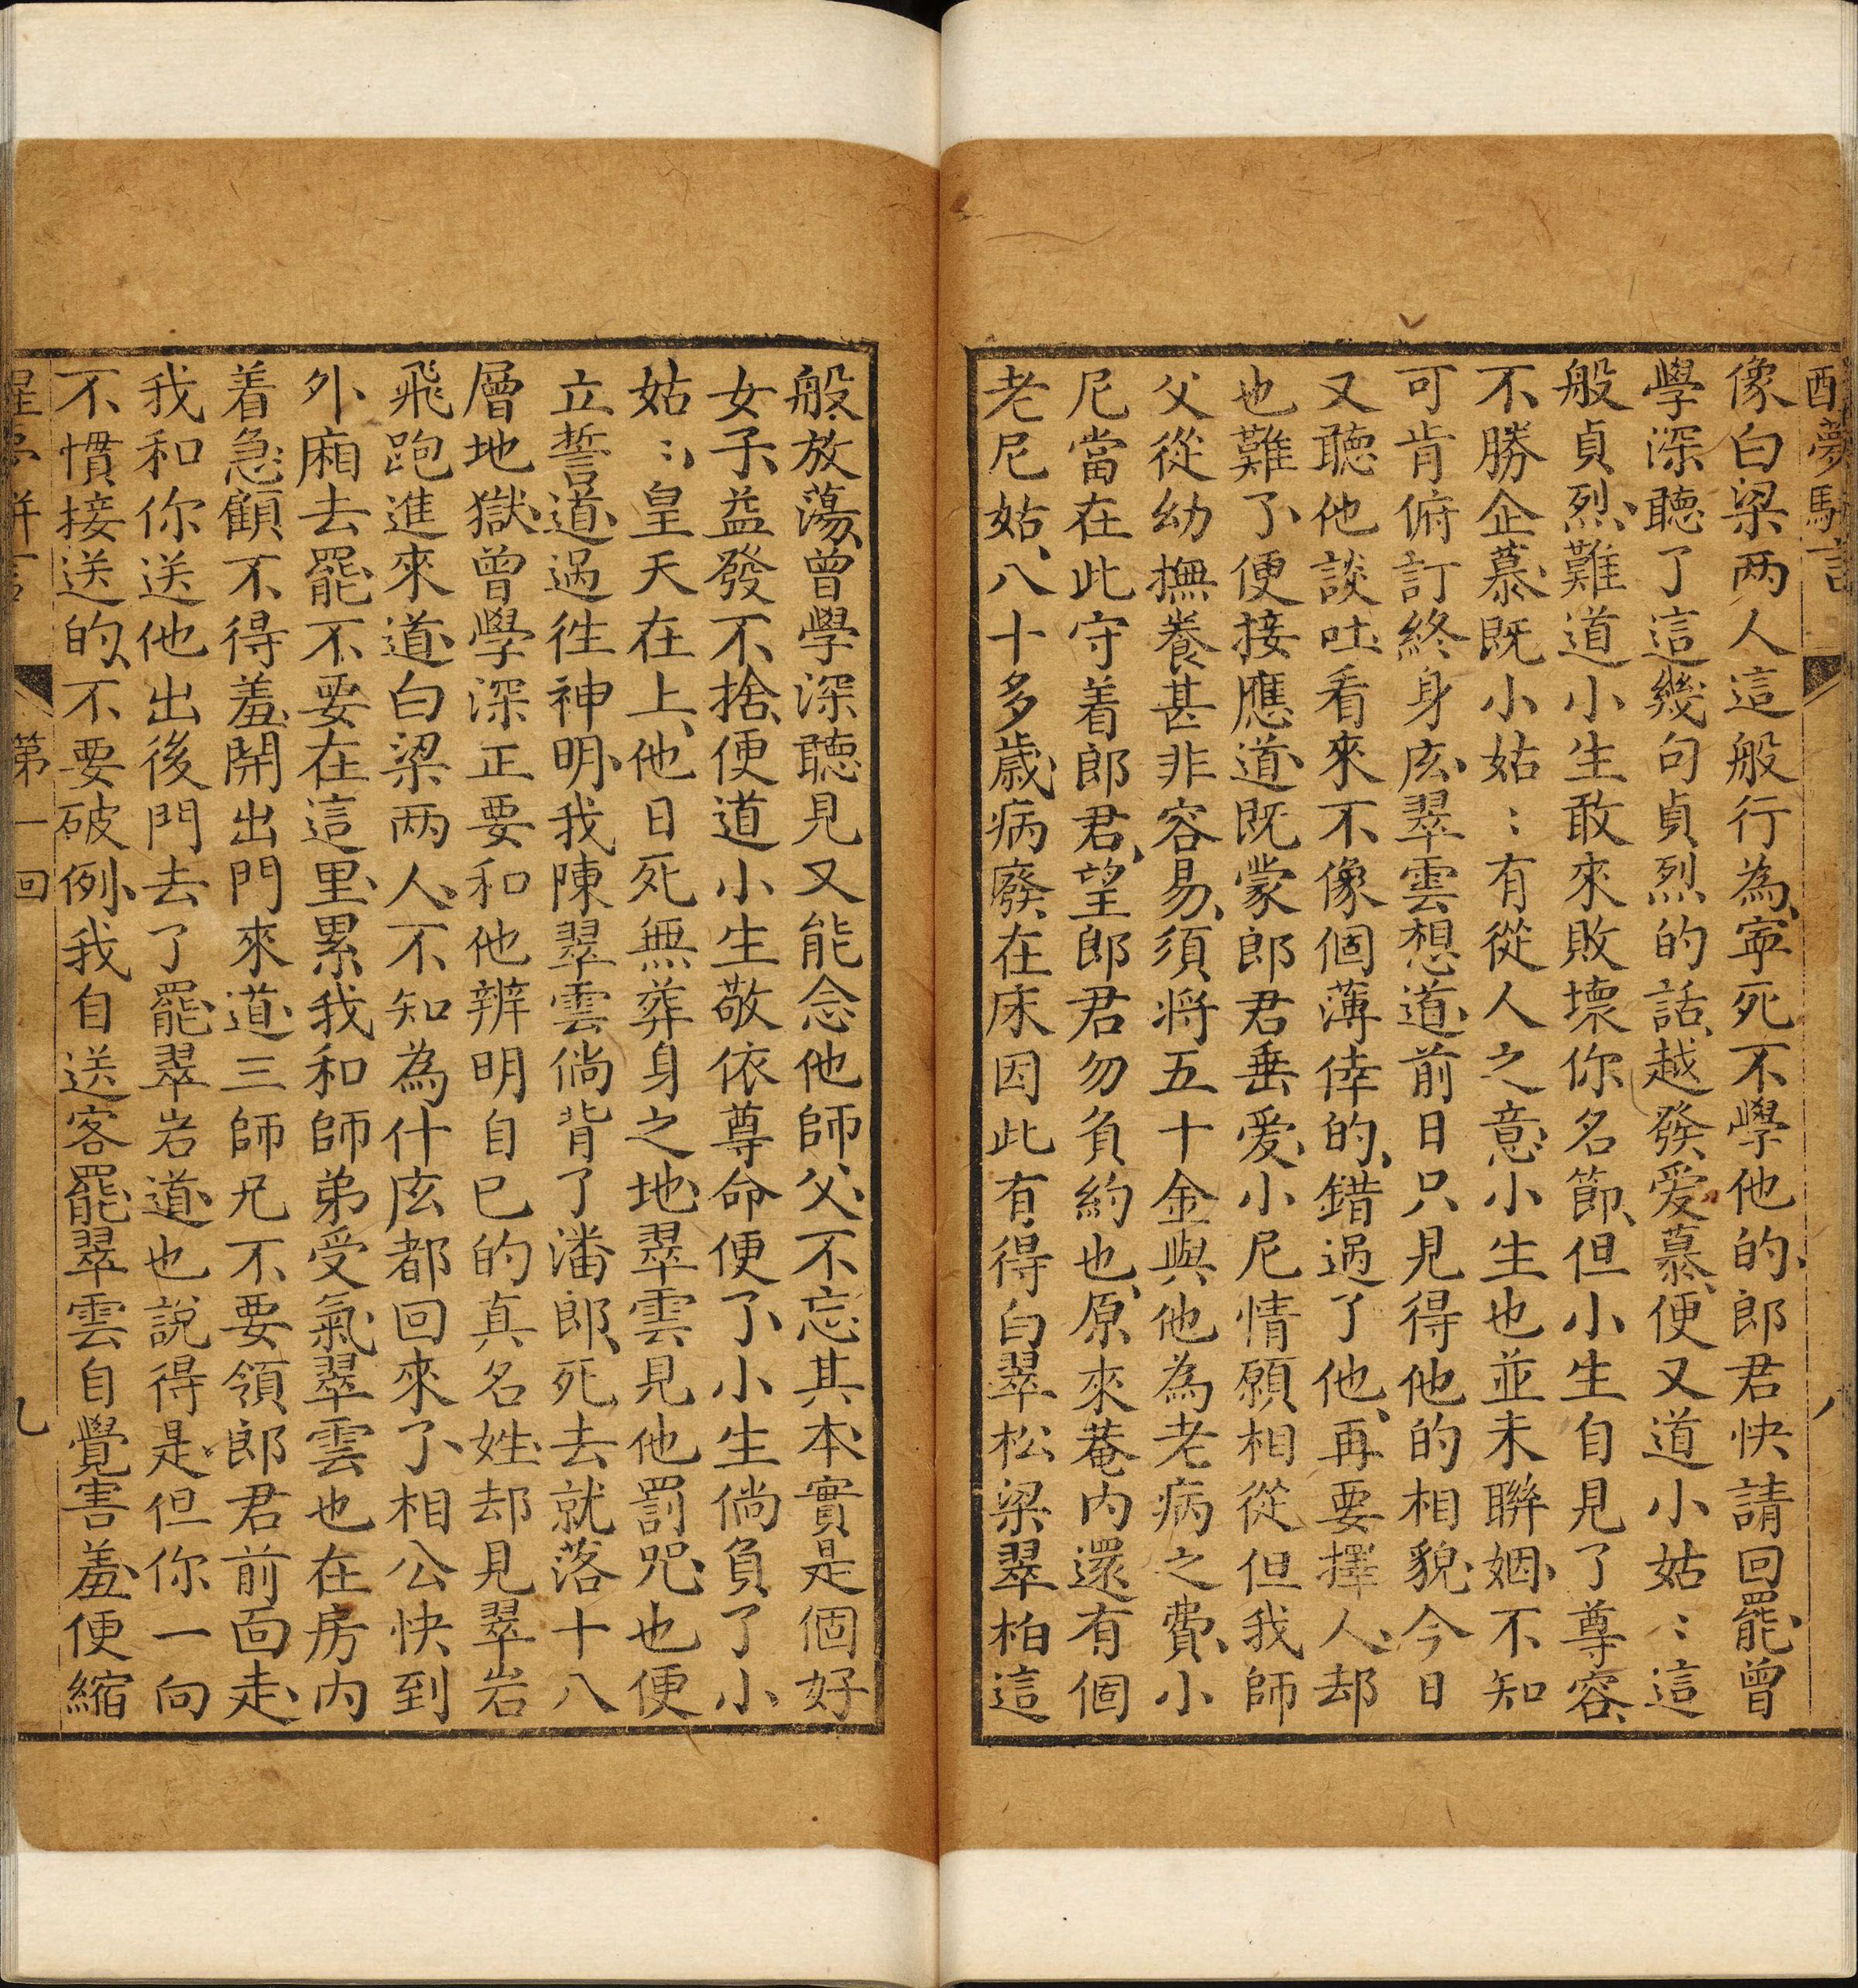 醒夢駢言
像白梁两人這般行為、寕死不學他的、郎君快請回罷、曾
學深聽了這幾句貞烈的話、越發爱慕、便又道小姑〻這
般貞烈、難道小生敢來敗壞你名節、但小生自見了尊容、
不勝企慕、既小姑〻有從人之意、小生也並未聯姻、不知
可肯俯訂終身庅、翠雲想道、前日只見得他的相貌、今日
又聽他談吐、看來不像個薄倖的、錯過了他、再要擇人、却
也難了、便接應道、既蒙郎君垂爱、小尼情願相從、但我師
父從幼撫養、甚非容易、須将五十金與他為老病之費、小
尼當在此守着郎君、望郎君勿負約也、原來菴内還有個
老尼姑、八十多歳、病廢在床、因此有得白翠松梁翠柏這
般放蕩、曾學深聽見又能念他師父、不忘其本、實是個好
女子、益發不捨、便道小生敬依尊命便了、小生倘負了小
姑〻、皇天在上、他日死無葬身之地、翠雲見他罰咒、也便
立誓道、過徃神明、我陳翠雲倘背了潘郎、死去就落十八
層地獄、曾學深正要和他辨明自己的真名姓、却見翠岩
飛跑進來道、白梁两人、不知為什庅都回來了、相公快到
外廂去罷、不要在這里、累我和師弟受氣、翠雲也在房内
着急、顧不得羞、開出門來道、三師兄不要領郎君前面走、
我和你送他出後門去了罷、翠岩道、也說得是、但你一向
不慣接送的、不要破例、我自送客罷、翠雲自覺害羞、便縮
第一回
九